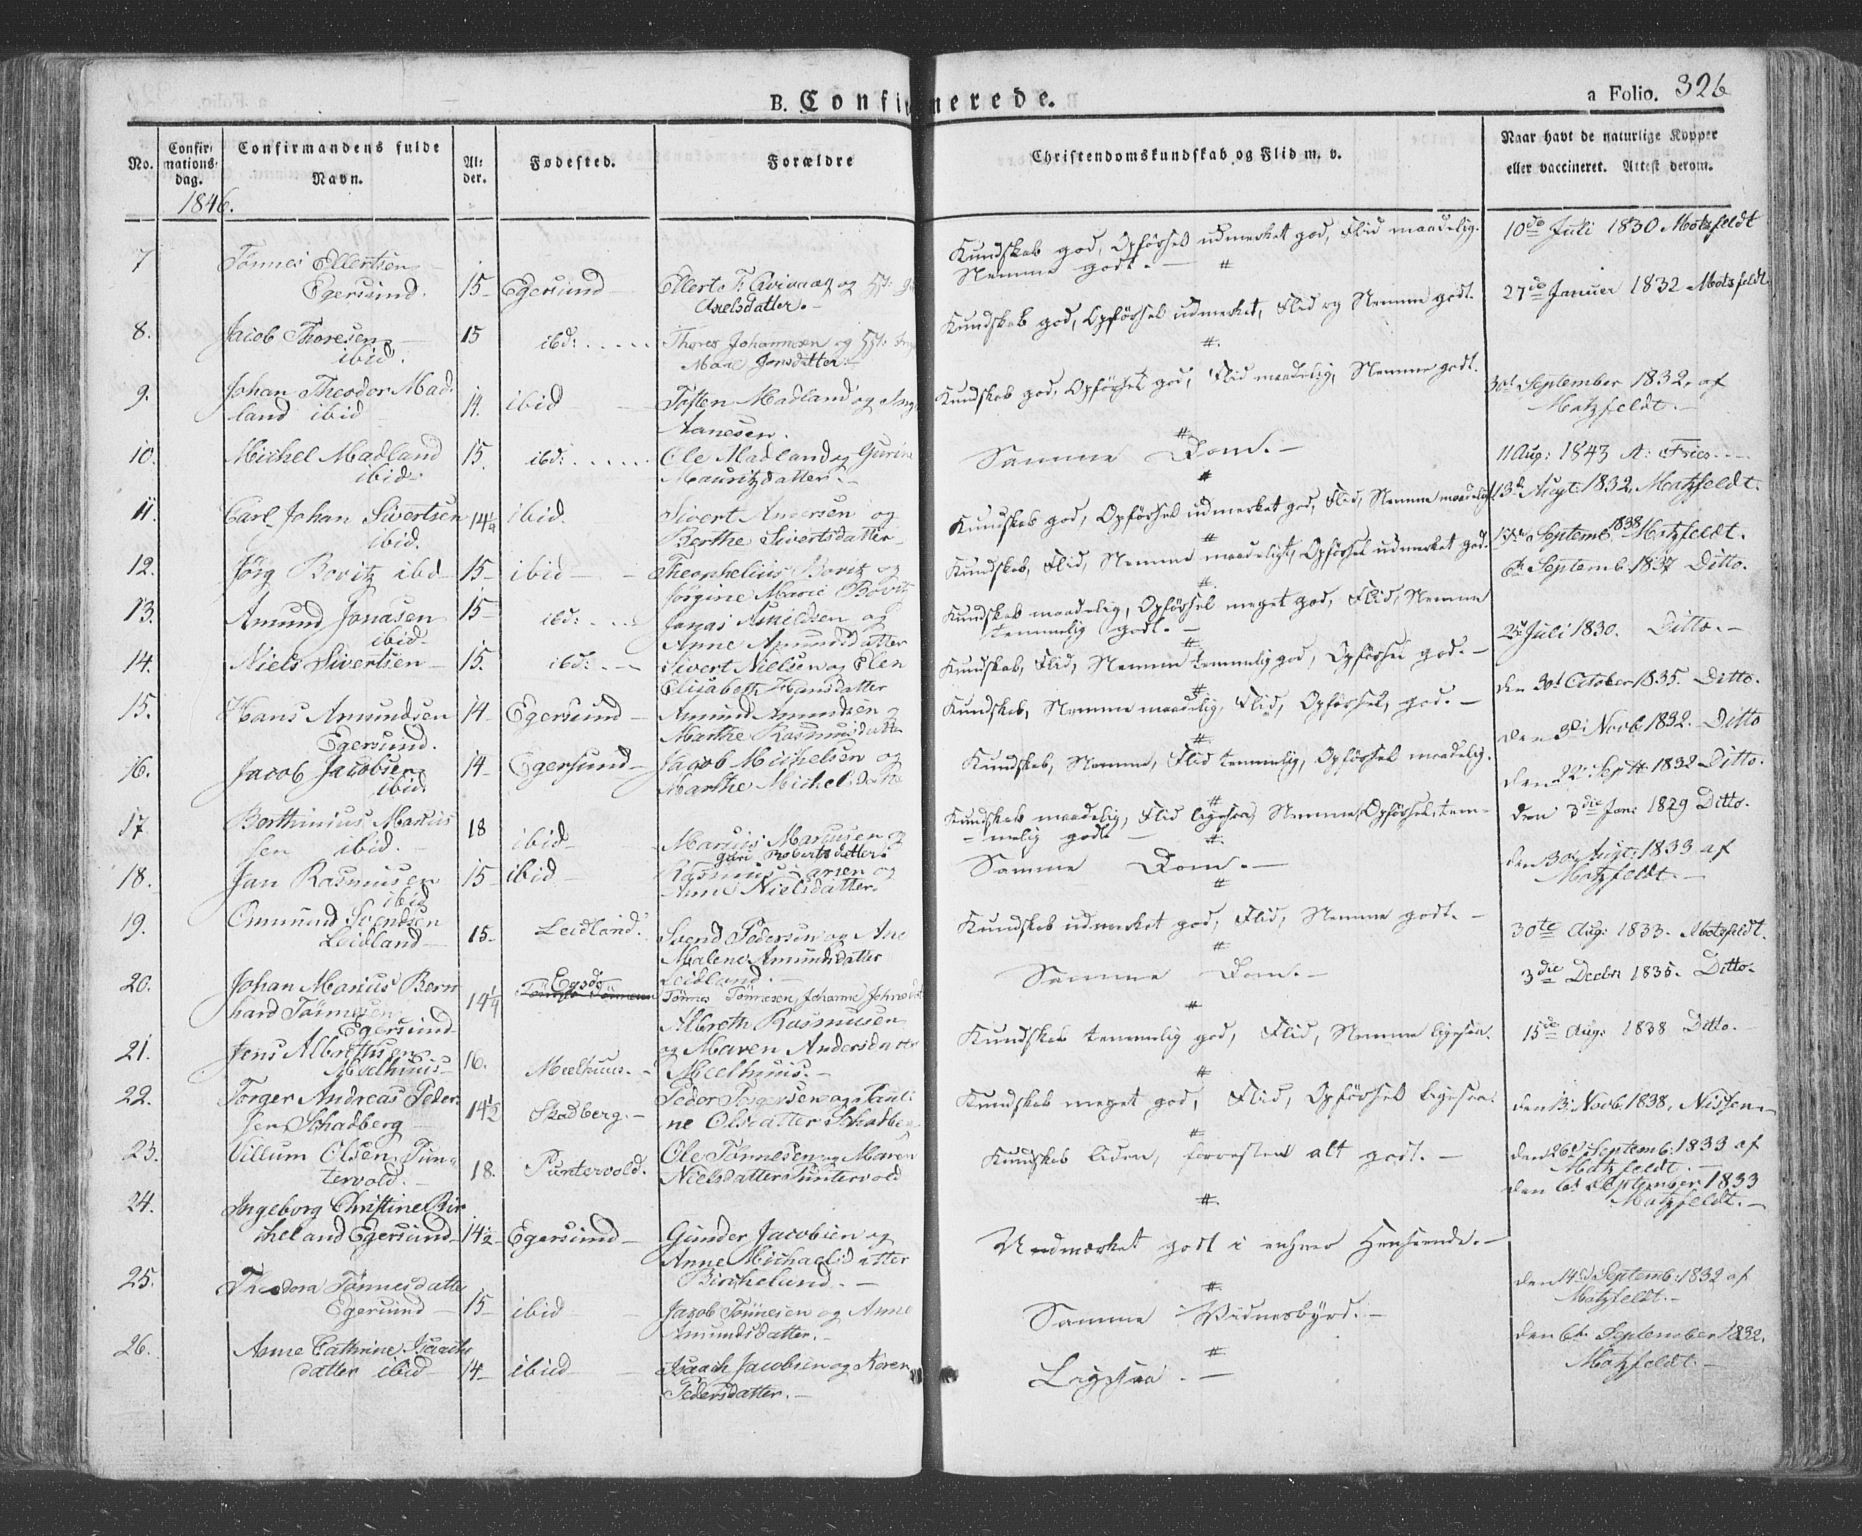 B. Confirmerede.
a Folio. 326
No.
Confir-
mations-
dag.
Confirmandens fulde
Navn.
Al-
der.
Fødested.
Forældre
Christendomskundskab og Flid m. v.
Naar havt de naturlige Kopper
eller vaccineret. Attest derom.
1846.
7 Tønnes Ellertsen
Egersund. 15 Egersund Ellert T. og
Axelsdatter.
Kundskab god, Opførsel udmerket god, Flid maadelig.
Nemme godt.
10de Juli 1830 Motzfeldt
8. Jacob Thoresen
ibid. 15 ibd: Thores Johannesen og
Marie Jonsdatter
Kundskab god, Opførsel udmerket, Flid og Nemme godt.
27de Januer 1832 Motzfeldt
9. Johan Theodor Mad-
land ibid 14. ibid Tosten Madland og
Aanesen.
Kundskab god, Opførsel god, Flid maadelig, Nemme godt.
30d September 1832. af
Motzfeldt.
10. Michel Madland
ibid 15. ibd: Ole Madland og Gurine
Mauritzdatter.
Samme Dom.
11 Aug: 1843 A: Fries
11. Carl Johan Sivertsen
ibid. 14 1/4 ibid. Sivert Andersen og
Berthe Sivertsdatter
Kundskab god, Opførsel udmerket god, Flid, Nemme maadeligt
13d Augt. 1832. Motzfeldt.
12. Jørg Bovitz ibd 15 ibid Theophelius Bovitz og
Jørgine Marie Bovitz
Kundskab, Flid, Nemme maadeligt, Opførsel udmerket god.
Septemb. 1838 Motzfeldt.
13. Amund Jonasen
ibid 15 ibd: Jonas Asnildsen og
Anne Amundsdatter
Kundskab maadelig, Opførsel meget god, Flid, Nemme
temmelig godt.
6t Septemb. 1837 Ditto.
14. Niels Sivertsen 15. ibd: Sivert Nielsen og Elen
Elisabeth Hansdatter
Kundskab, Flid, Nemme temmelig god, Opførsel god.
Juli 1830. Ditto.
15. Hans Amundsen
Egersund. 14 Egersund Amund Amundsen og
Marthe Rasmusdatter
Kundskab, Nemme maadelig, Flid, Opførsel, god.
den 30t October 1835. Ditto.
16. Jacob Jacobsen
ibid 14 Egersund Jacob Michelsen og
Marthe Michelsdatter
Kundskab, Nemme, Flid temmelig, Opførsel maadelig.
den 3di Novb 1832. Ditto
den 22 Sept 1832 Ditto.
17. Berthinius Marcus
sen ibid. 18 ibid Marcus Marcusen og
Guri Robertsdatter.
Kundskab maadelig, Flid ligesaa, Nemme, Opførsel, tem-
melig godt
den 3die Jan: 1829 Ditto.
18. Jan Rasmusen
ibid 15 ibid Rasmus Larsen og
Anne Nielsdatter.
Samme Dom.
den 30 Augt: 1833 af
Motzfeldt.
19. Omund Svendsen
Leidland 15 Leidland. Svend Pedersen og Ane
Malene Amundsdatter
Leidland.
Kundskab udmerket god, Flid, Nemme godt.
30te Aug: 1833. Motzfeldt.
20. Johan Marius Bern
hard Tønnesen
Egersund 14 1/4 Egsøg Tønnes Tønnesen, Johanne
Samme Dom.
3die Decbr 1835. Ditto.
21. Jens Albrethsen
Mælhuus 16. Mælhuus. Albreth Rasmusen
og Maren Andersdatter
Mælhuus.
Kundskab temmelig god, Flid, Nemme ligesaa.
15de Aug: 1838 Ditto.
22. Torger Andreas Peder-
sen Schadberg 14 1/2 Skadberg. Peder Torgersen og Pauli-
ne Olsdatter Schadberg
Kundskab meget god, Flid, Opførsel ligesaa.
den 13 Novb. 1838, Nissen
23. Villum Olsen Pun-
tervold. 18. Puntervold. Ole Tønnesen og Maren
Nielsdatter Puntervold
Kundskab liden, forresten alt godt.
den 26d Septemb: 1833 af
Motzfeldt.
24. Ingeborg Christine Bir
cheland Egersund 14 1/2 Egersund Gunder Jacobsen og
Anne Michaelsdatter
Bircheland.
Udmærket godt i enhver Henseende.
den 6d September 1833
Motzfeldt.
25. Theodora Tønnesdatte
Egersund 15 ibid Jacob Tønnesen og Anne
Amundsdatter.
Samme Vidnesbyrd.
den 14d Septemb: 1832 af
Motzfeldt.
26. Anne Cathrine Isaachs
datter ibid 14 ibid Isaach Jacobsen og Karen
Pedersdatter.
Ligesaa.
den 6t September 1832.
Motzfeldt.